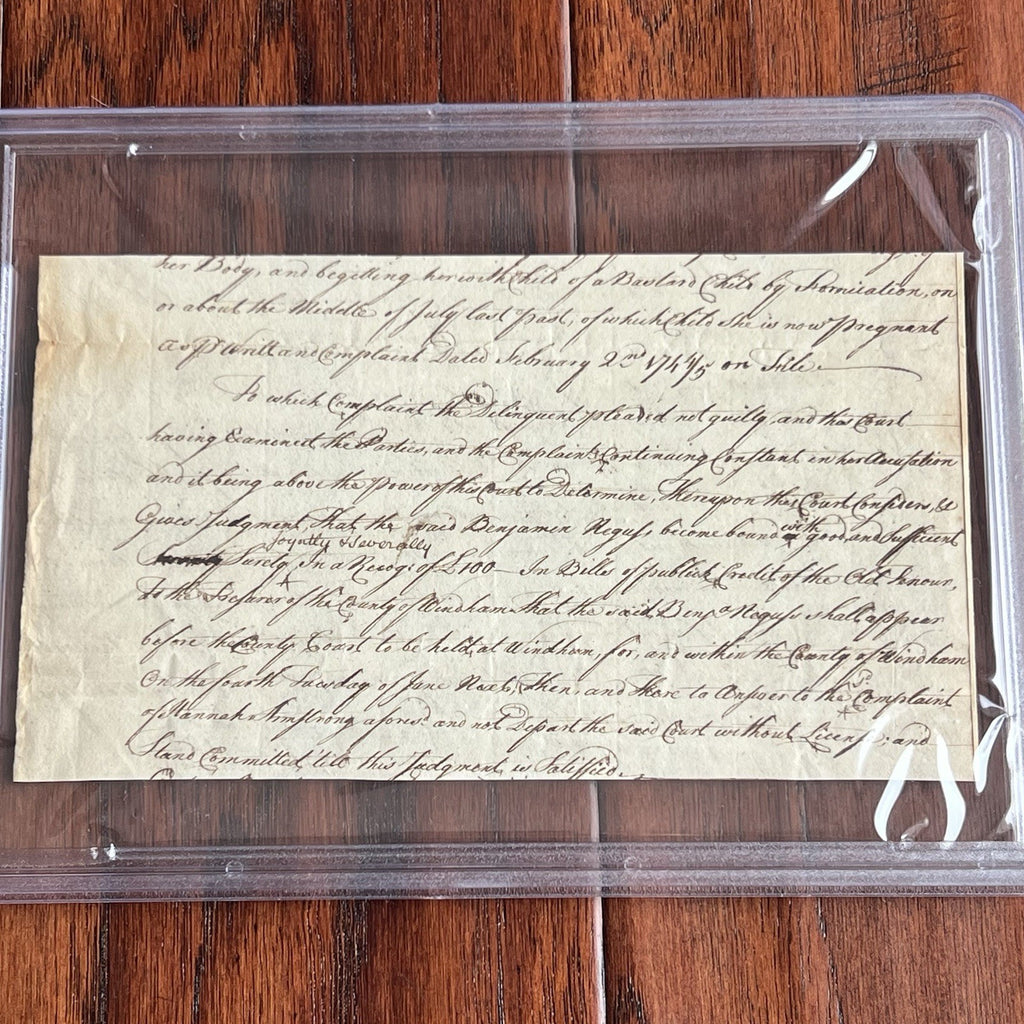 her Body, and begetting her with Child of a Bastard Child by Fornication, on
or about the Middle of July last past, of which Child She is now pregnant
as p Writt and Complaint Dated February 2nd 1744/5 on File.
To which Complaint the Delinquent pleaded not guilty, and this Court
having Examined the Parties, and the Complaint Continuing Constant in her Accusation
and it being above the Power of this Court to Determine, Thereupon this Court Considers, &
Gives Judgment, That the said Benjamin Neguss, become bound with good and Sufficient
joyntly & Severally
Surety, In a Recog: of £100 In Bills of publick Credit of the Old Tenour,
to the Tresurer of the County of Windham That the said Benja Neguss shall appear
before the County Court to be held at Windham, for, and within the County of Windham
On the fourth Tuesday of June Next, Then, and there to Answer to the Complaint
of Hannah Armstrong aforesd and not Depart the said Court without License; and
Stand Committed till this Judgment is Satisfied.